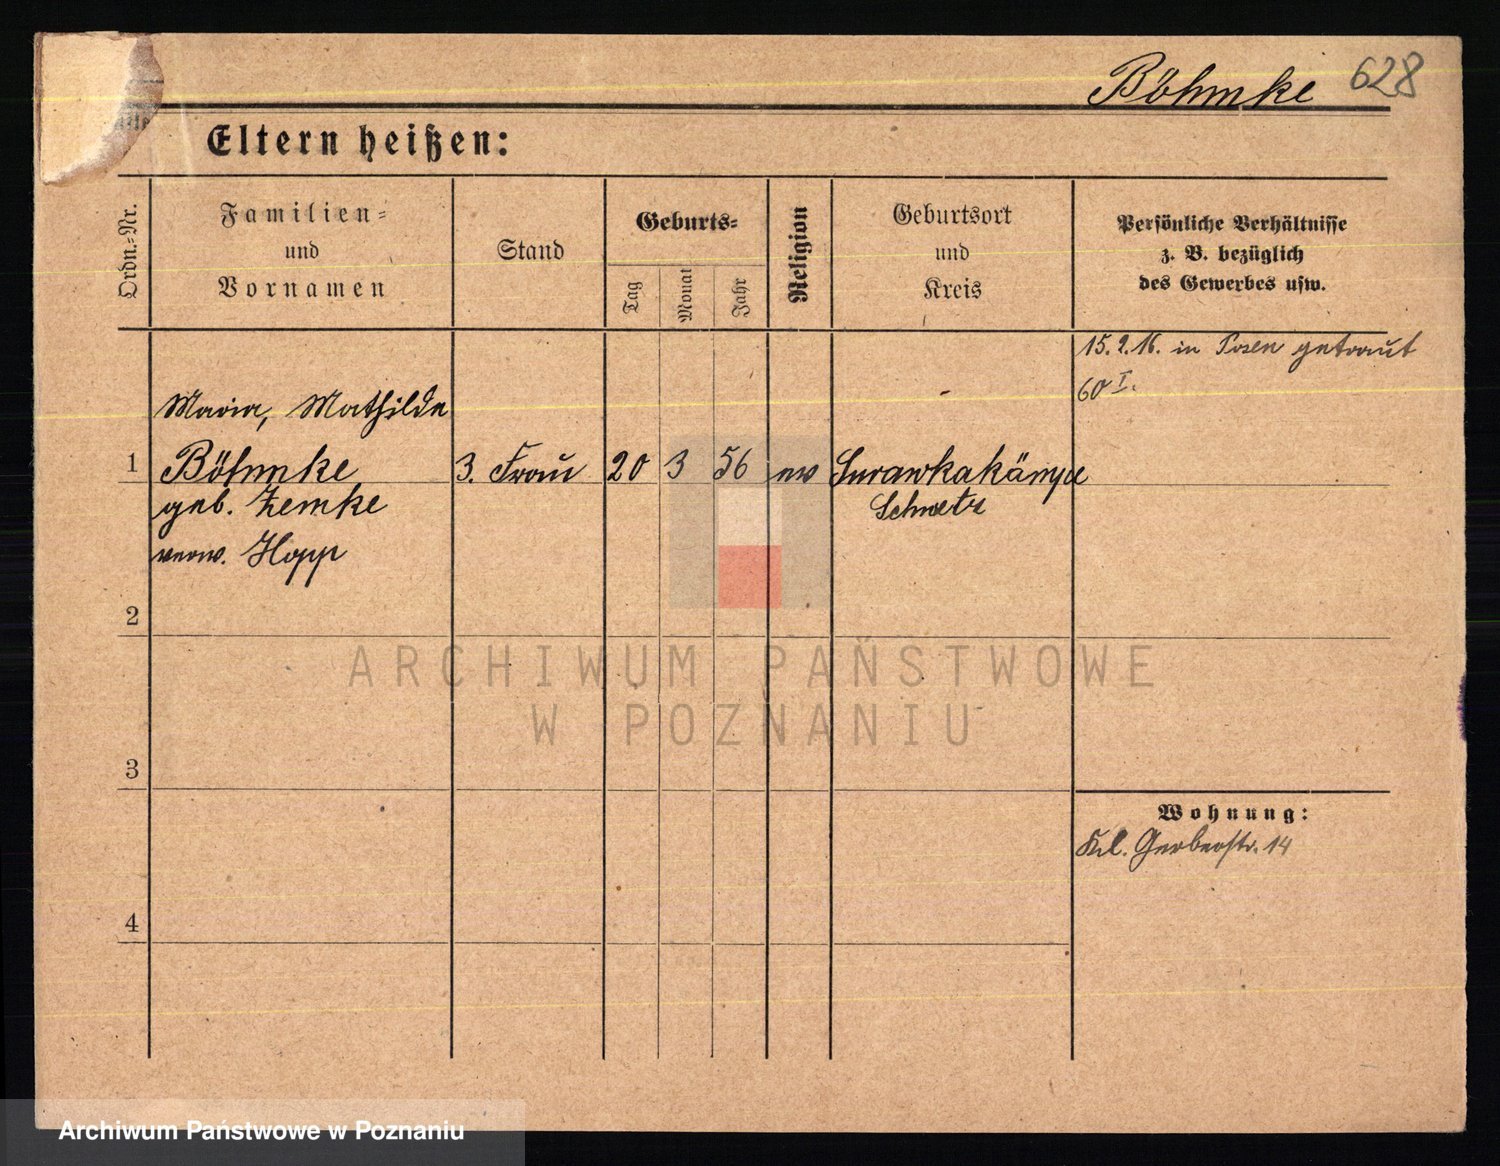 Böhmke 628
Eltern heißen:
Ordn.=Nr.
Familien=
und
Vornamen
Stand
Geburts=
Tag
Monat
Jahr
Religion
Geburtsort
und
Kreis
Persönliche Verhältnisse
z. B. bezüglich
des Gewerbes usw.
15.2.16. in Posen getraut
60 I.
Maria, Mathilde
1 Böhmke 3. Frau 20 3 56 ev
geb. Zemke Schwetz
verw. Hopp
2
3
4
Wohnung:
Kl. Gerberstr. 14
ARCHIWUM PAŃSTWOWE
W POZNANIU
Archiwum Państwowe w Poznaniu